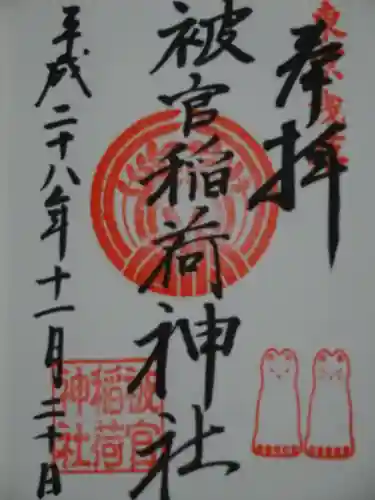 奉拝
東京浅草
被官稲荷神社
平成二十八年十一月二十日
被官
稲荷
神社